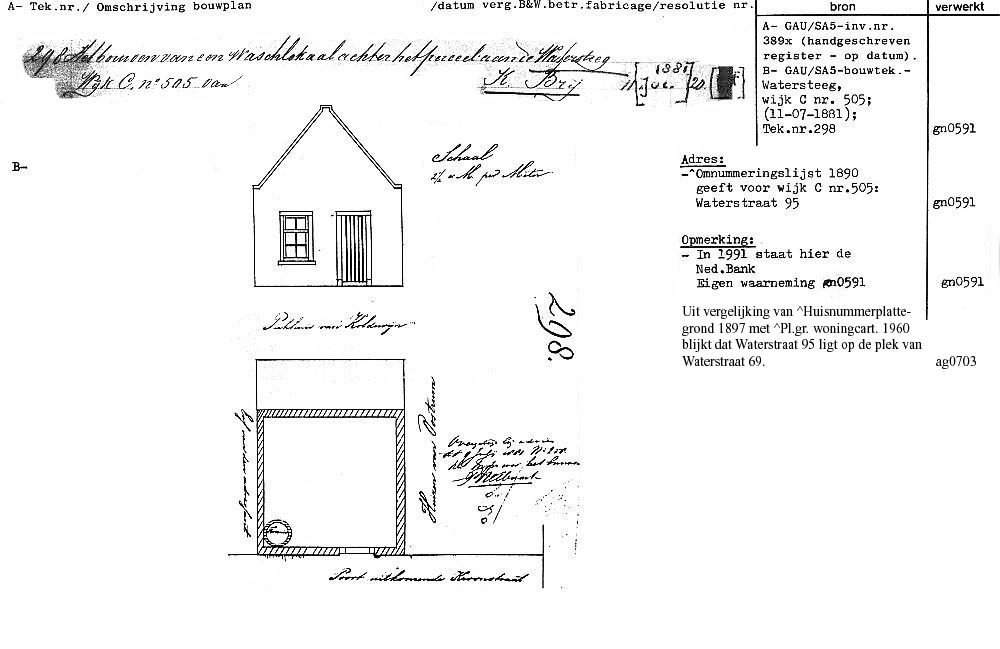 A- Tek.nr./ Omschrijving bouwplan /datum verg.B&W.betr.fabricage/resolutie nr. bron verwerkt
298 Het bouwen van een Waschlokaal achter het perceel aan de Watersteeg
Wijk C. nº 505 van K. Brij 11 1881 20.
A- GAU/SA5-inv.nr.
389x (handgeschreven
register - op datum).
B- GAU/SA5-bouwtek.-
Watersteeg,
wijk C nr. 505;
(11-07-1881);
Tek.nr.298 gn0591
B-
Schaal
2½ c.M. per Meter
Adres:
-^Omnummeringslijst 1890
geeft voor wijk C nr.505:
Waterstraat 95 gn0591
Opmerking:
- In 1991 staat hier de
Ned.Bank
Eigen waarneming gn0591 gn0591
Uit vergelijking van ^Huisnummerplatte-
grond 1897 met ^Pl.gr. woningcart. 1960
blijkt dat Waterstraat 95 ligt op de plek van
Waterstraat 69. ag0703
298.
van Kolderijn
Huizen van Oostrum
Poort uitkomende